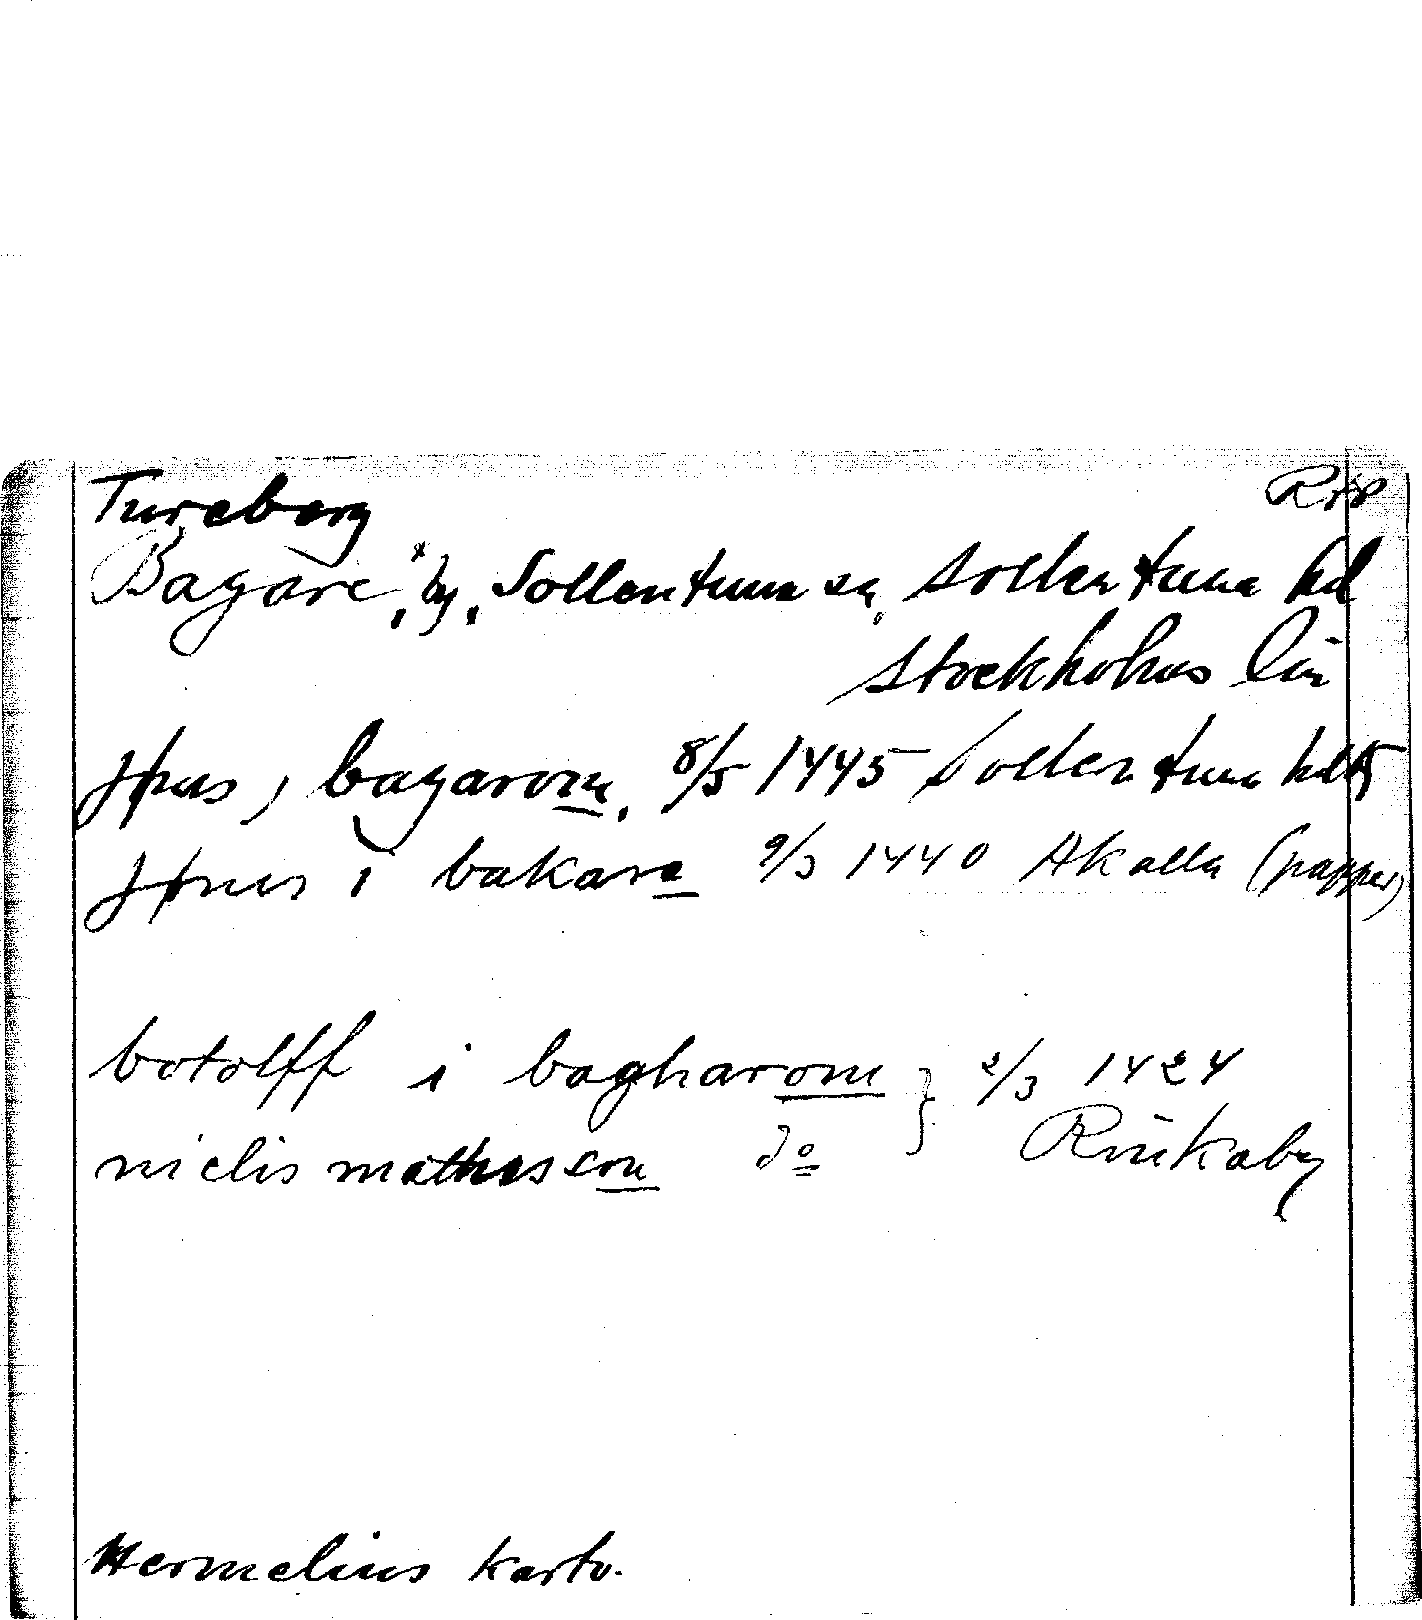 Tureberg RAP
Bagare, by, Sollentuna sn, Sollentuna hd
Stockholms län
Jpus j bagarom, 8/5 1445 Sollentuna hds
Jpus i bakara 9/3 1440 Akalla (papper)
botolff i bagharom } 2/3 1424
nielis mathesson do Rinkaby
Hermelins karto.